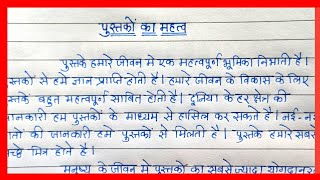 पुस्तकों का महत्व
पुस्तके हमारे जीवन मे एक महत्वपूर्ण भूमिका निभाती है।
स्तकों से हमे ज्ञान प्राप्ति होती है। हमारे जीवन के विकास के लिए
स्तके बहुत महत्वपूर्ण साबित होती है। दुनिया के हर क्षेत्र की
जानकारी हम पुस्तकों के माध्यम से हासिल कर सकते है। नई-नई
तो की जानकारी हमे पुस्तकों से मिलती है। पुस्तके हमारे सबसे
च्छे मित्र होते है।
मनुष्य के जीवन मे पुस्तकों का सबसे ज्यादा योगदान